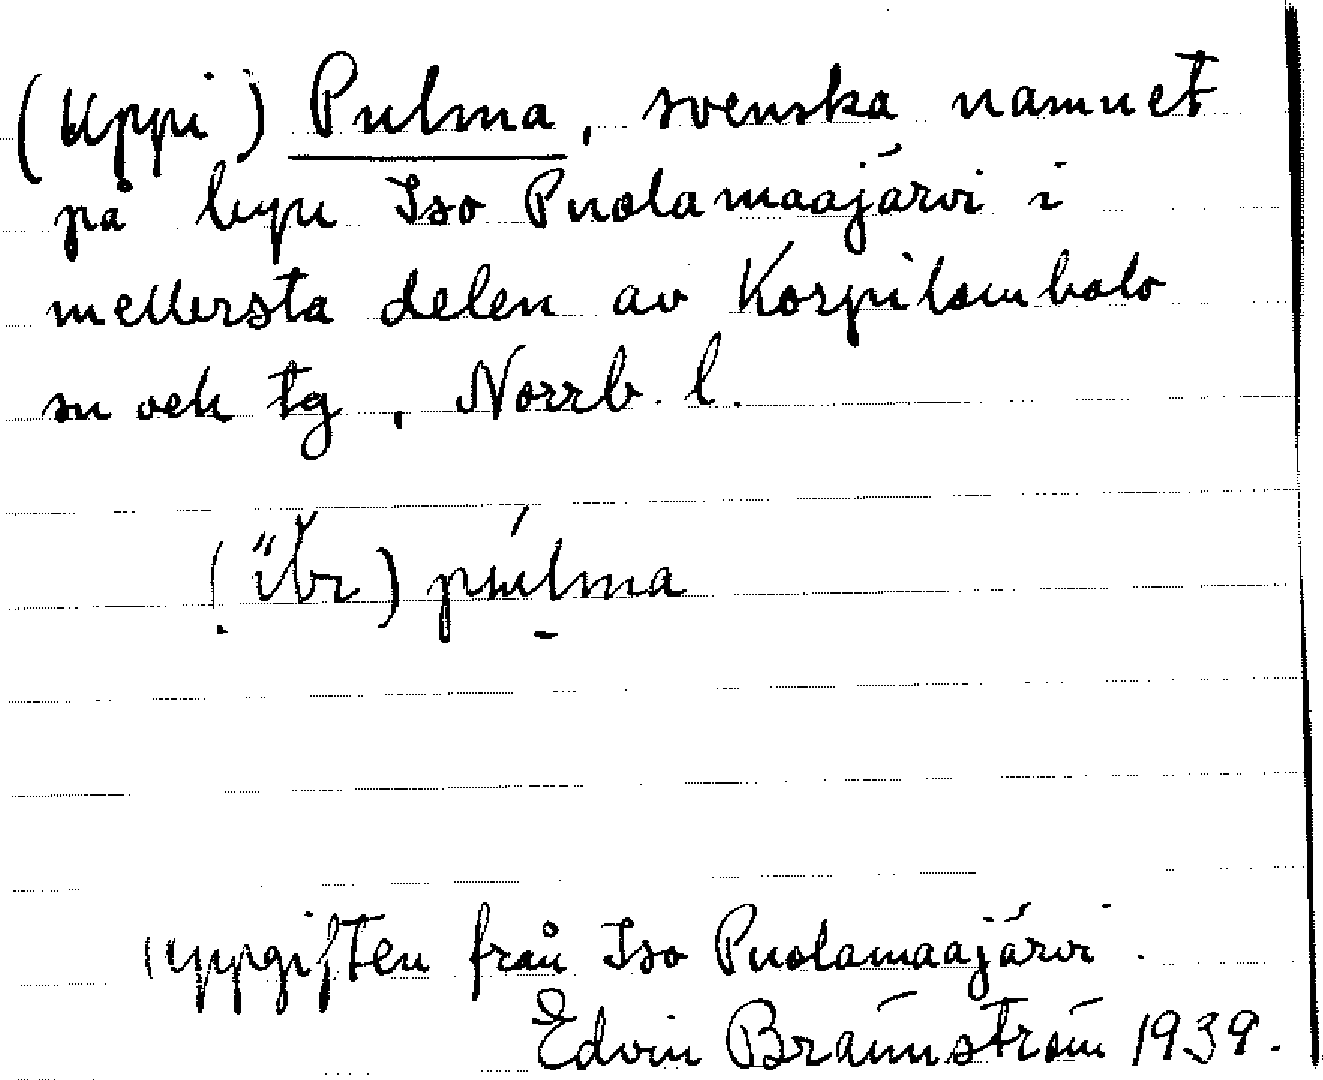 (Uppi) Pulma, svenska namnet
på byn Iso Puolamaajärvi i
mellersta delen av Korpilombolo
sn och tg, Norrb. l.
púlma
uppgiften från Iso Puolamaajärvi.
Edvin Brännström 1939.